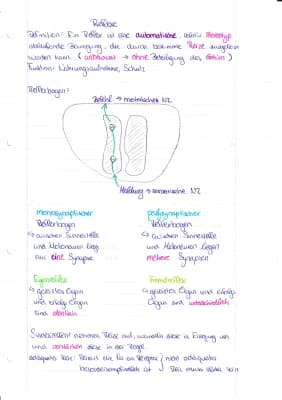 Reflexe
Definition: Ein Reflex ist eine automatische, relativ stereotyp
ablaufende Bewegung, die durch bestimmte Reize ausgelöst
werden kann. (unbewusst → ohne Beteiligung des Gehirn)
Funktion: Nahrungsaufnahme, Schutz
Reflexbogen:
Befehl → motorisches NZ
Meldung → sensorische NZ
monosynaptischer
Reflexbogen
↳ zwischen Sinneszelle
und Motoneuron liegt
nur eine Synapse
polysynaptischer
Reflexbogen
↳ zwischen Sinneszelle
und Motoneuron liegen
mehrere Synapsen
Eigenreflex
↳ gereiztes Organ
und erfolgs Organ
sind identisch
Fremdreflex
↳ gereiztes Organ und erfolgs
Organ sind unterschiedlich
Sinneszellen: nehmen Reize auf, wandeln diese in Erregung um
und verstärken diese in der Regel
adäquater Reiz: Reizart die für ein Rezeptor / nicht adäquater
Reiz muss stärker sein